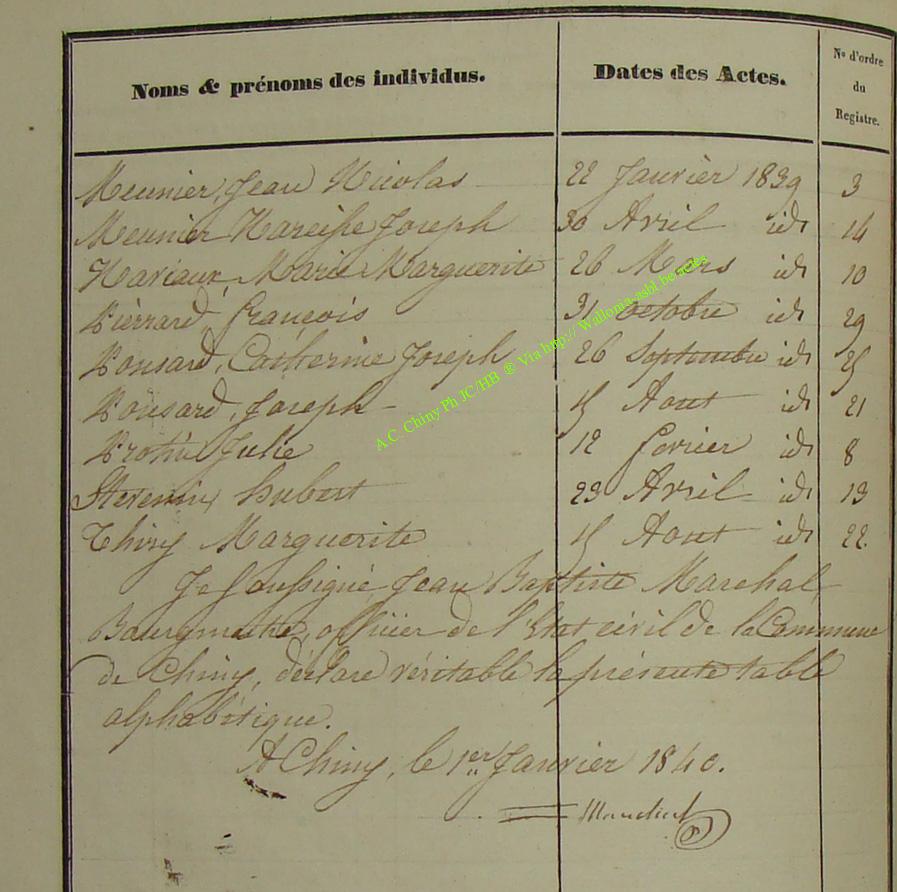 Noms & prénoms des individus. Dates des Actes. No d'ordre du Registre.
Meunier, Jean Nicolas 22 Janvier 1839 3
Meunier Joseph 30 Avril id. 14
Mariaux Marie Marguerite 26 Mars id. 10
Pierrard, françois 31 octobre id. 29
Ponsard, Catherine Joseph 26 Septembre id. 25
Ponsard, Joseph 15 Aout id. 21
Protin Julie 12 fevrier id. 8
Stevenin, hubert 23 Avril id. 13
Thiry Marguerite 15 Aout id. 22.
Je Soussigné Jean Baptiste Marechal,
Bourgmestre, officier de l'Etat civil de la Commune
de Chiny, déclare véritable la présente table
alphabétique.
A Chiny, le 1er Janvier 1840.
A.C. Chiny Ph JC/HB ® Via http:// Wallonia-asbl.be/actes